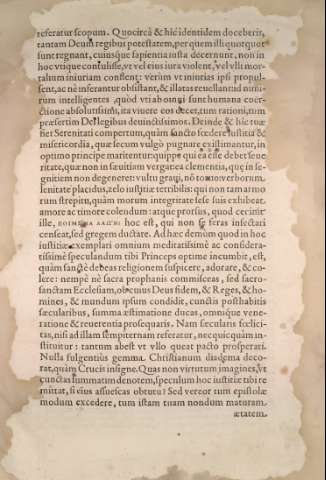 referatur scopum. Quocirca & hic identidem doceberis,
tantam Deum regibus potestatem, per quem illi quotquot
sunt regnant, cuiusque sapientia iusta decernunt, non in
hoc vtique contulisse, vt vel eius iura violent, vel vlli mor-
talium iniuriam consient: verùm vt iniurias ipsi propul-
sent, ac nè inferantur obsistant, & illatas reuellant
rium intelligentes quòd vti ab omni sunt humana coër-
ctione absolutissimi, ita viuere eos decet, tum rationi, tum
præsertim Dei legibus deuinctissimos. Deinde & hic
fiet Serenitati compertum, quàm sancto fœdere iustitia &
misericordia, quæ secum vulgò pugnare existimantur, in
optimo principe maritentur: quippe qui ea esse debet seue-
ritate, quæ non in sæuitiam vergat: ea clementia, quę in se-
gnitiem non degeneret: vultu graui, nō toruo: verborum
lenitate placidus, zelo iustitiæ terribilis: qui non tam armo
rum strepitu, quàm morum integritate sese suis exhibeat,
amore ac timore colendum: atque prorsus, quod cecinit
ille, hoc est, qui non se feras insectari
censeat, sed gregem ductare. Ad hæc demùm quod in hoc
iustitiæ exemplari omnium meditatissimè ac considera-
tissimè speculandum tibi Princeps optime incumbit, est,
quàm sanctè debeas religionem suspicere, adorare, & co-
lere: nempè nè sacra prophanis commisceas, sed sacro-
sanctam Ecclesiam, ob cuius Deus fidem, & Reges, & ho-
mines, & mundum ipsum condidit, cunctis posthabitis
sæcularibus, summa æstimatione ducas, omnique vene-
ratione & reuerentia prosequaris. Nam sæcularis fœlici-
tas, nisi ad illam sempiternam referatur, nec quicquàm in-
stituitur: tantum abest vt vllo queat pacto prosperari.
Nulla fulgentiùs gemma. Christianum diadema deco-
rat, quàm Crucis insigne. Quas non virtutum imagines, vt
cunctas summatim denotem, speculum hoc iustitiæ tibi re
mittat, si eius assuescas obtutu? Sed vereor tum epistolæ
modum excedere, tum istam tuam nondum maturam
ætatem.